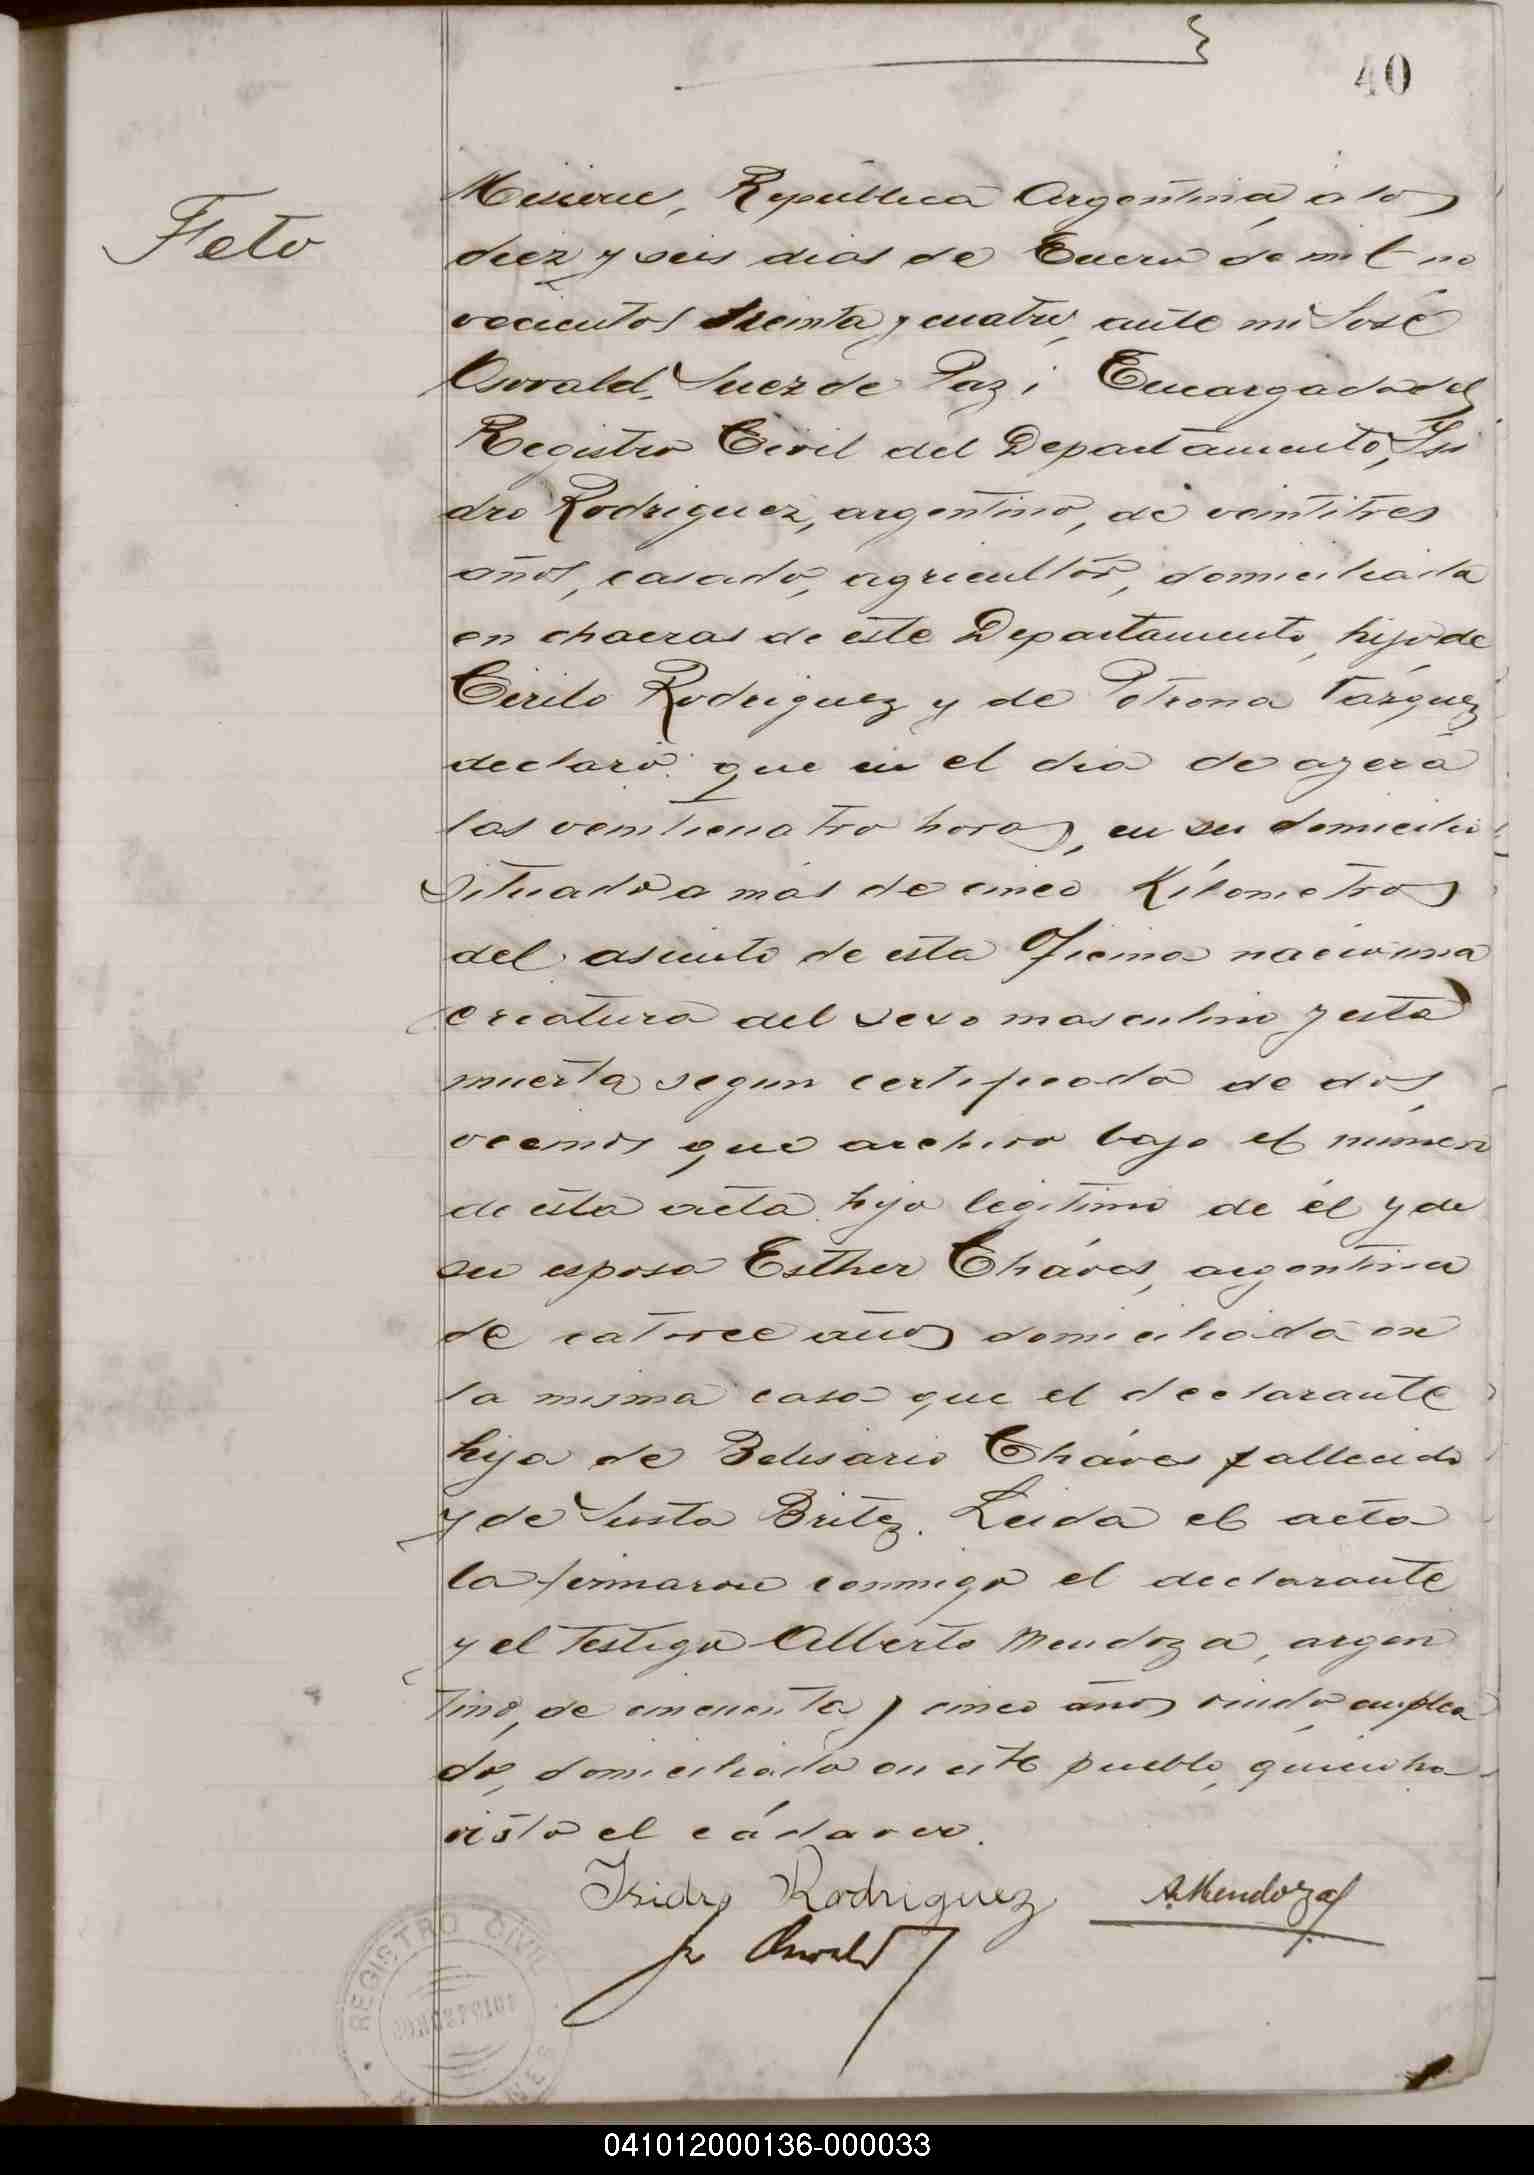 40
Feto
Misiones, República Argentina, a los
diez y seis dias de Enero de mil no
vecientos treinta y cuatro, ante mi José
Oswald, Juez de Paz i Encargado del
Registro Civil del Departamento, Isi
dro Rodriguez, argentino, de veintitres
años, casado, agricultor, domiciliado
en chacras de este Departamento, hijo de
Cirilo Rodriguez y de Petrona Vázquez
declaró: que en el dia de ayer a
las veinticuatro horas, en su domicilio
situado a más de cinco Kilometros
del asiento de esta Oficina nacio una
criatura del sexo masculino y esta
muerta segun certificado de dos
vecinos que archivo bajo el número
de esta acta, hijo legitimo de él y de
su esposa Esther Cháves, argentina
de catorce años domiciliada en
la misma casa que el declarante
hija de Belisario Cháves fallecido
y de Justa Britez. Leida el acta
la firmaron conmigo el declarante
y el testigo Alberto Mendoza, argen
tino, de cincuenta y cinco años viudo, emplea
do, domiciliado en este pueblo, quien ha
visto el cádaver.
Isidro Rodriguez A. Mendoza
Oswald
REGISTRO CIVIL
041012000136-000033